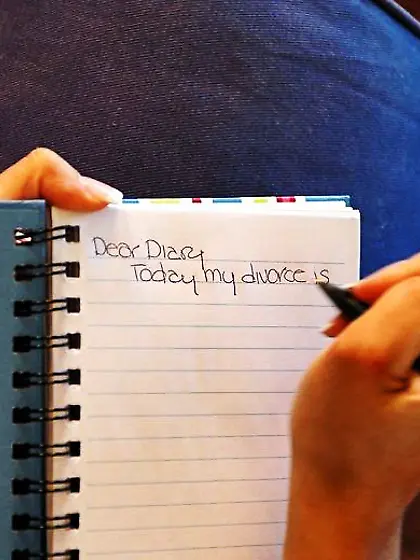 Dear Diary
Today my divorce is